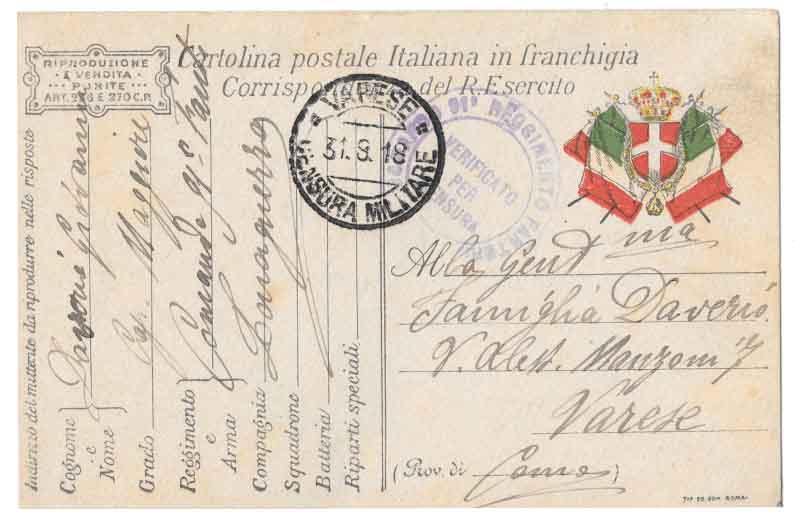 Cartolina postale Italiana in franchigia
Corrispondenza del R. Esercito
RIPRODUZIONE
E VENDITA
PUNITE
ART. 276 E 270 C.P.
VARESE
31.8.18
CENSURA MILITARE
91º REGGIMENTO FANTERIA
VERIFICATO
PER
CENSURA
Indirizzo del mittente da riprodurre nelle risposte
Cognome
e
Nome
Giovanni
Grado Cap. Maggiore
Reggimento
e
Arma
Comando 91º Fant
Compagnia Zona guerra
Squadrone
Batteria
Riparti speciali
Alla Gent ma
Famiglia Daverio
V. Aless. Manzoni 7
Varese
(Prov. di Como)
TIP. ED. ROMA